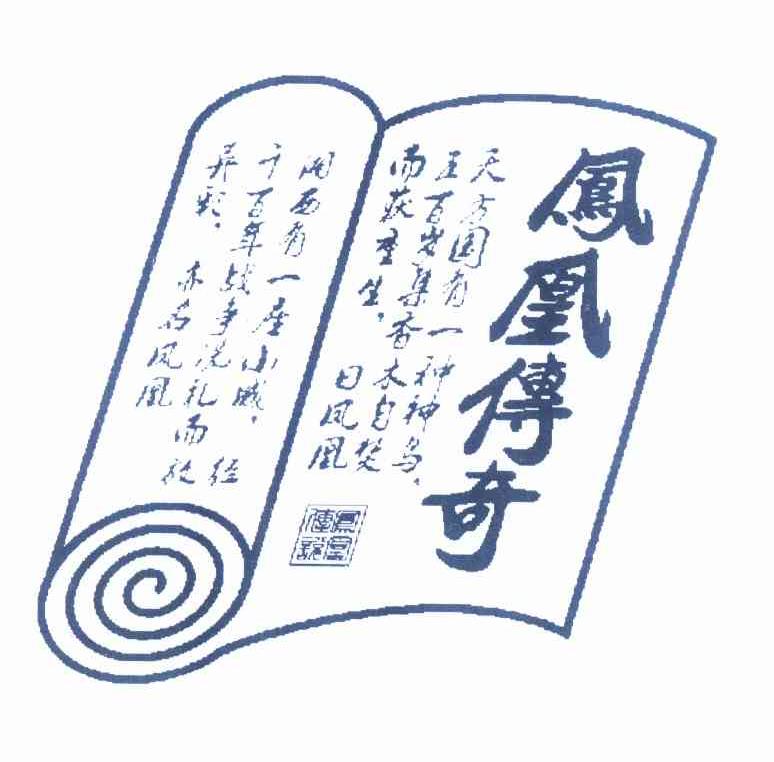 鳳凰傳奇
天方国有一种神鸟，
五百岁集香木自焚
而获重生，曰凤凰
湘西有一座小城，经
千百年战争洗礼而放
异彩，亦名凤凰
鳳凰
傳說